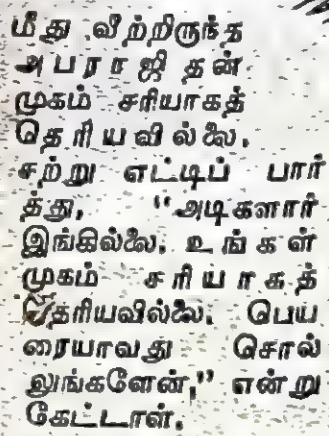 மீது வீற்றிருந்த
அபராஜிதன்
முகம் சரியாகத்
தெரியவில்லை.
சற்று எட்டிப் பார்
த்து, "அடிகளார்
இங்கில்லை. உங்கள்
முகம் சரியாகத்
தெரியவில்லை. பெய
ரையாவது சொல்
லுங்களேன்," என்று
கேட்டாள்.